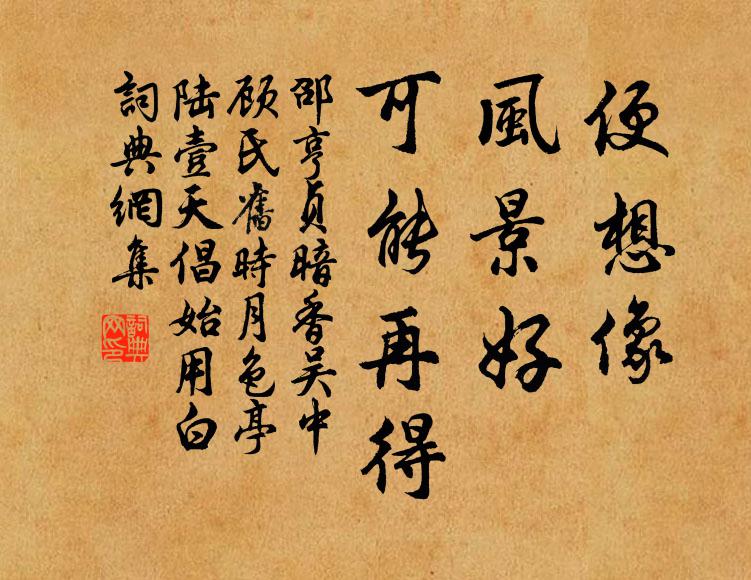 便想像
風景好
可能再得
邵亨貞暗香吴中
顾氏舊時月色亭
陆壹天倡始用白
詞典網集
詞典網印